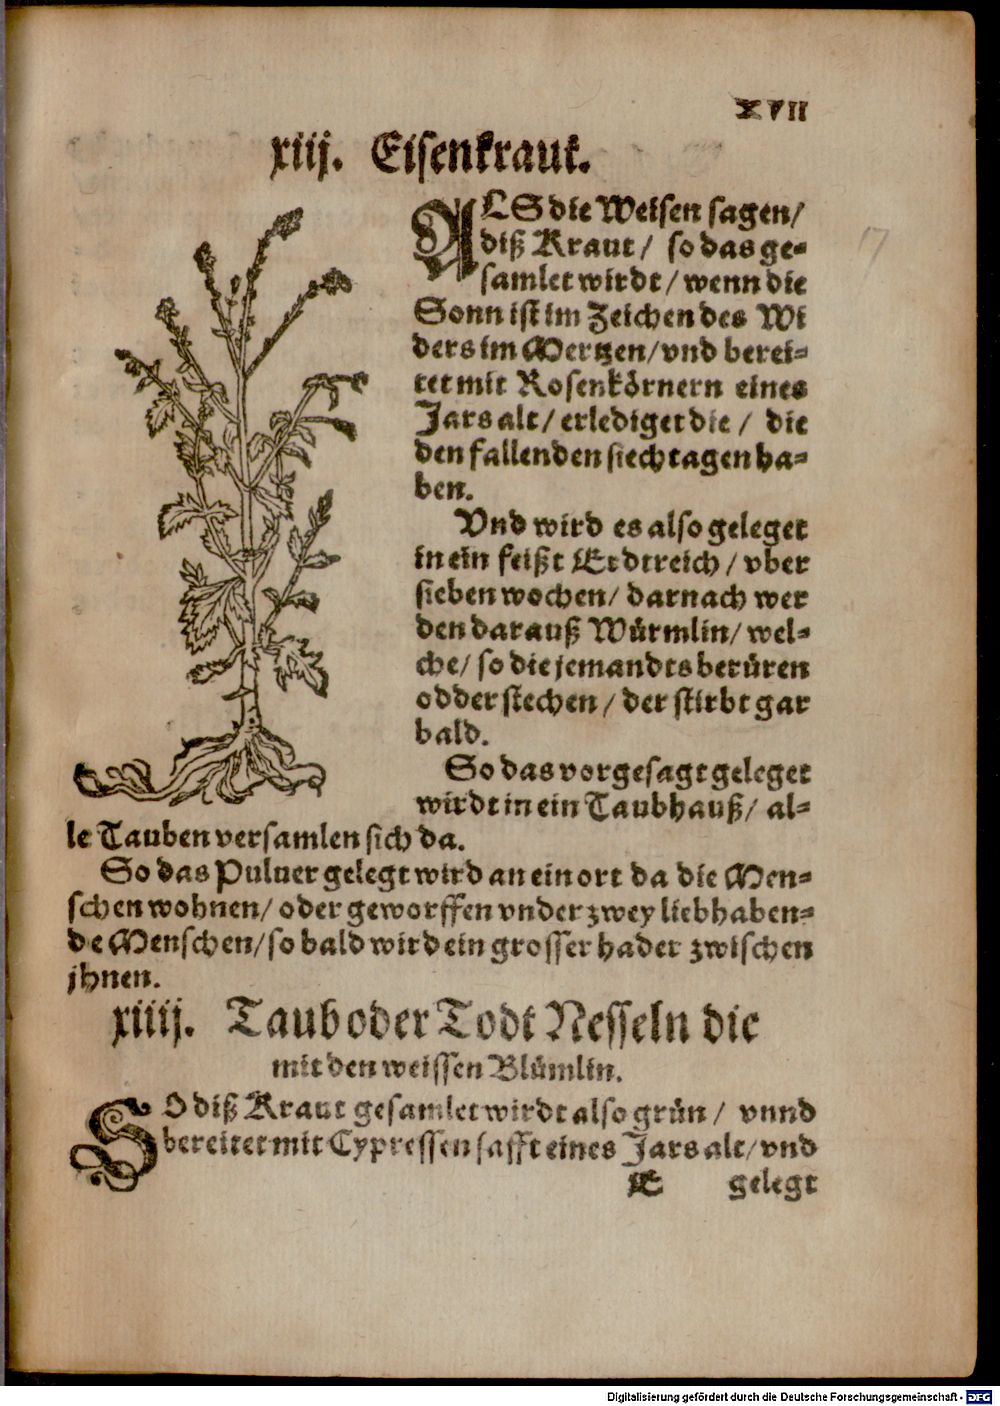 XVII
xiij. Eisenkraut.
ALS die Weisen sagen/
diß Kraut/ so das ge-
samlet wirdt/ wenn die
Sonn ist im Zeichen des Wi
ders im Mertzen/ vnd berei-
tet mit Rosenkörnern eines
Jars alt/ erlediget die/ die
den fallenden siechtagen ha-
ben.
Vnd wird es also geleget
in ein feißt Erdtreich/ vber
sieben wochen/ darnach wer
den darauß Würmlin/ wel-
che/ so die jemandts berüren
odder stechen/ der stirbt gar
bald.
So das vorgesagt geleget
wirdt in ein Taubhauß/ al-
le Tauben versamlen sich da.
So das Puluer gelegt wird an ein ort da die Men-
schen wohnen/ oder geworffen vnder zwey liebhaben-
de Menschen/ so bald wird ein grosser hader zwischen
jhnen.
xiiij. Taub oder Todt Nesseln die
mit den weissen Blümlin.
SO diß Kraut gesamlet wirdt also grün/ vnnd
bereitet mit Cypressen safft eines Jars alt/ vnd
E gelegt
17
Digitalisierung gefördert durch die Deutsche Forschungsgemeinschaft - DFG